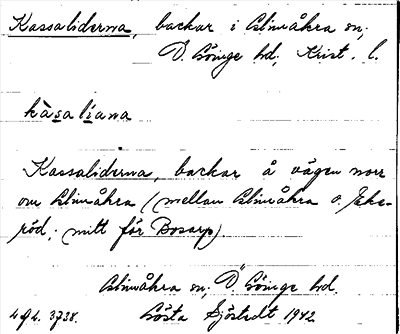 Kassaliderna, backar i Glimåkra sn,
Ö. Göinge hd, Krist. l.
kàsaliana
Kassaliderna, backar å vägen norr
om Glimåkra (mellan Glimåkra o. Eke-
röd; mitt för Bosarp)
Glimåkra sn, Ö. Göinge hd.
Gösta Sjöstedt 1942